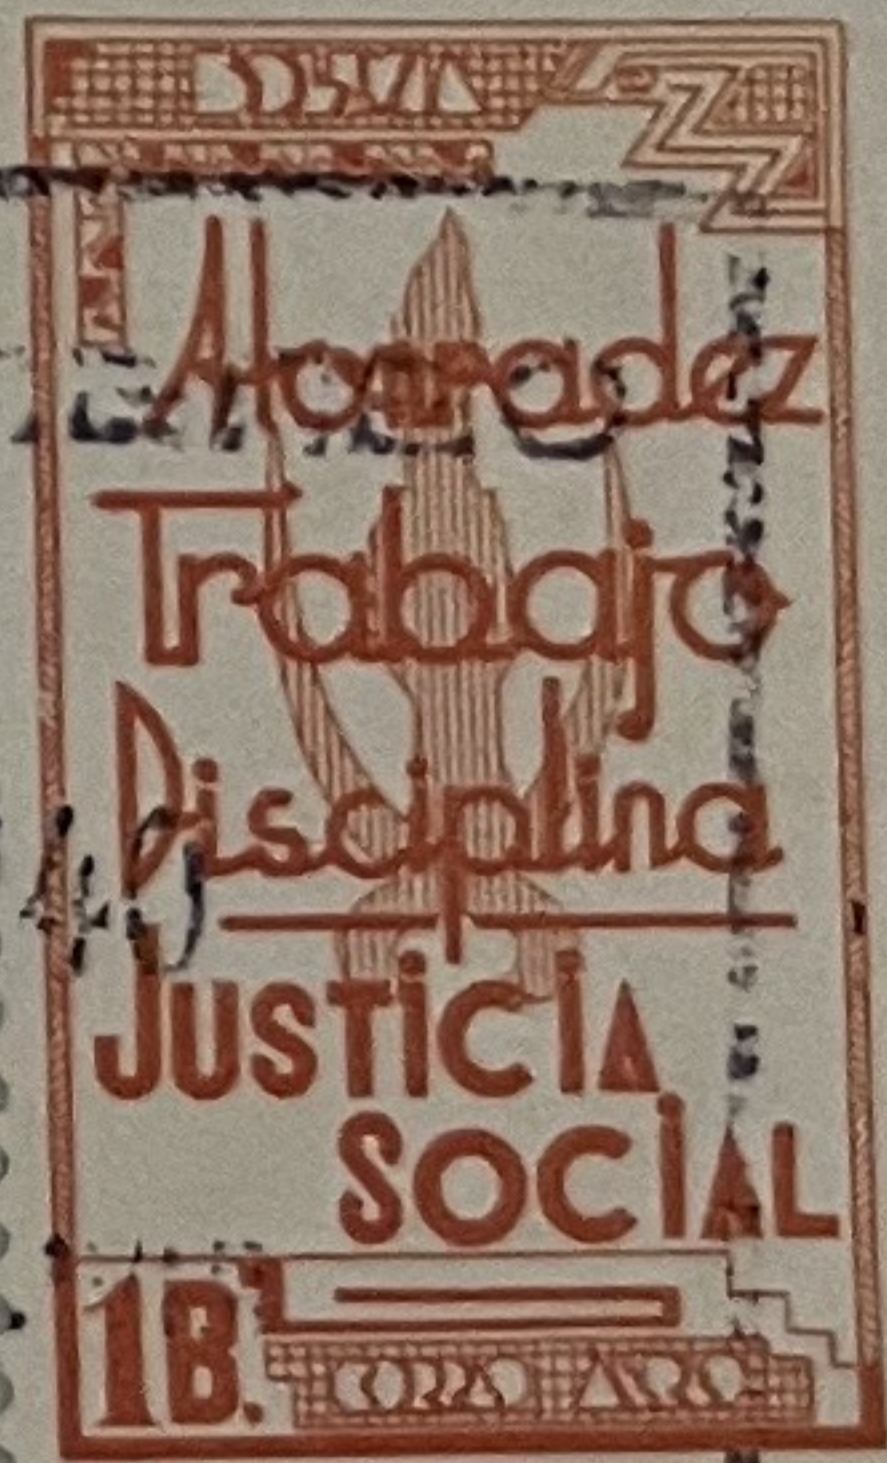 BOLIVIA
Honradez
Trabajo
Disciplina
JUSTICIA
SOCIAL
1B.
CORREO AEREO